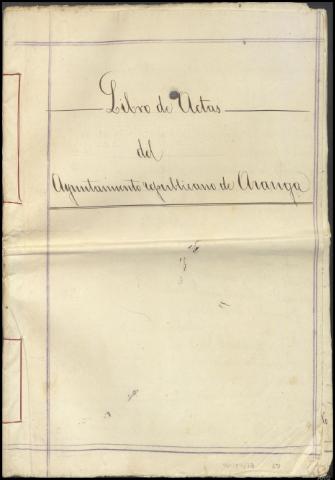 Libro de Actas
del
Ayuntamiento republicano de Aranga